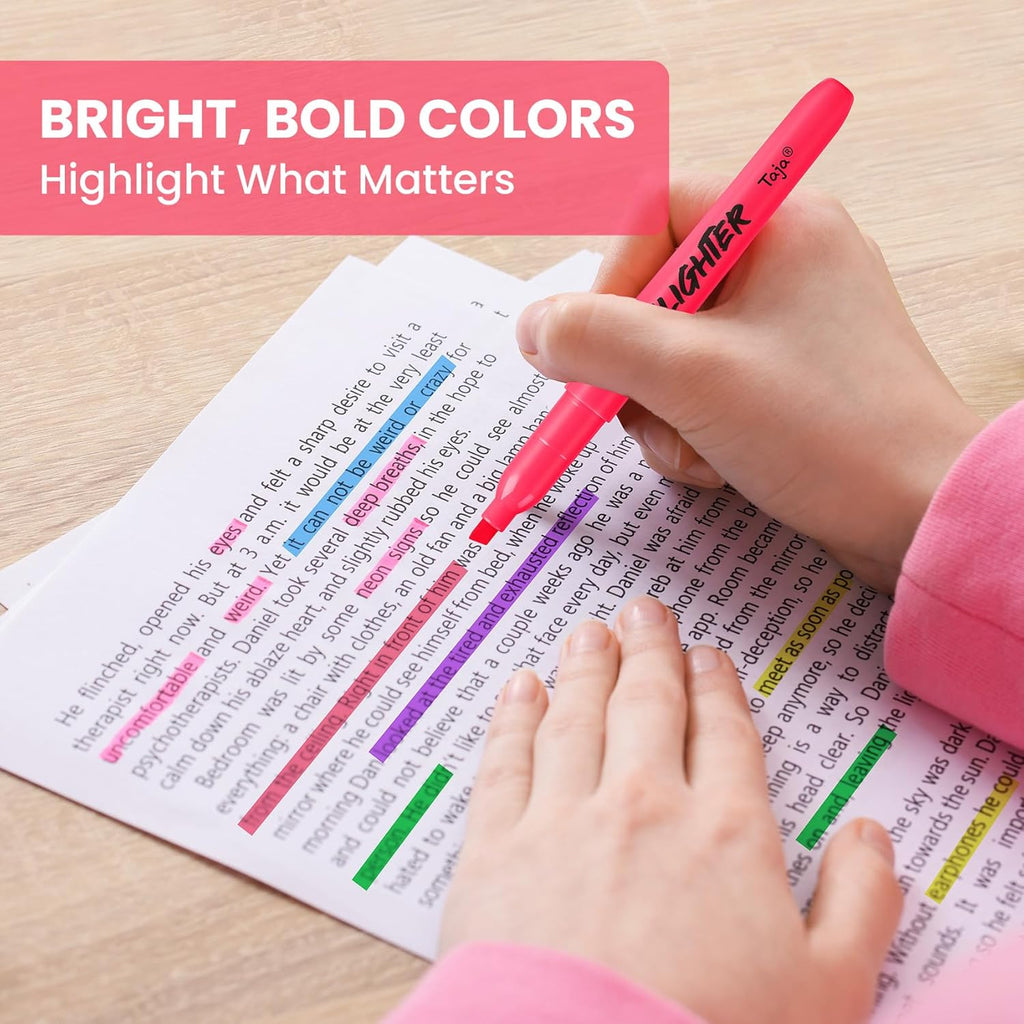 BRIGHT, BOLD COLORS
Highlight What Matters
Taja®
LIGHTER
He flinched, opened his eyes and felt a sharp desire to visit a
therapist right now. But at 3 a.m. it would be at the very least
uncomfortable and weird. Yet it can not be weird or crazy for
psychotherapists. Daniel took several deep breaths, in the hope to
calm down his ablaze heart, and slightly rubbed his eyes.
Bedroom was lit by some neon signs so he could see almost
everything: a chair with clothes, an old fan and a big lamp
from the ceiling. Right in front of him was
mirror where he could see himself from bed, when he woke up
morning Dan looked at the tired and exhausted reflection of him
and could not believe that a couple weeks ago he was a
person. He did
hated to wake that face every day, but even
it like to
ht. Daniel was afraid
at him from
phone from the
app. Room becam
ed from the mirror
-deception, so he
to meet as soon as po
anymore, so he deci
is a way to distrac
his head clear. So Dani
on and, leaving the li
the sky was dark
towards the sun. Da
Without earphones he could
sounds. It was impor
so he felt s